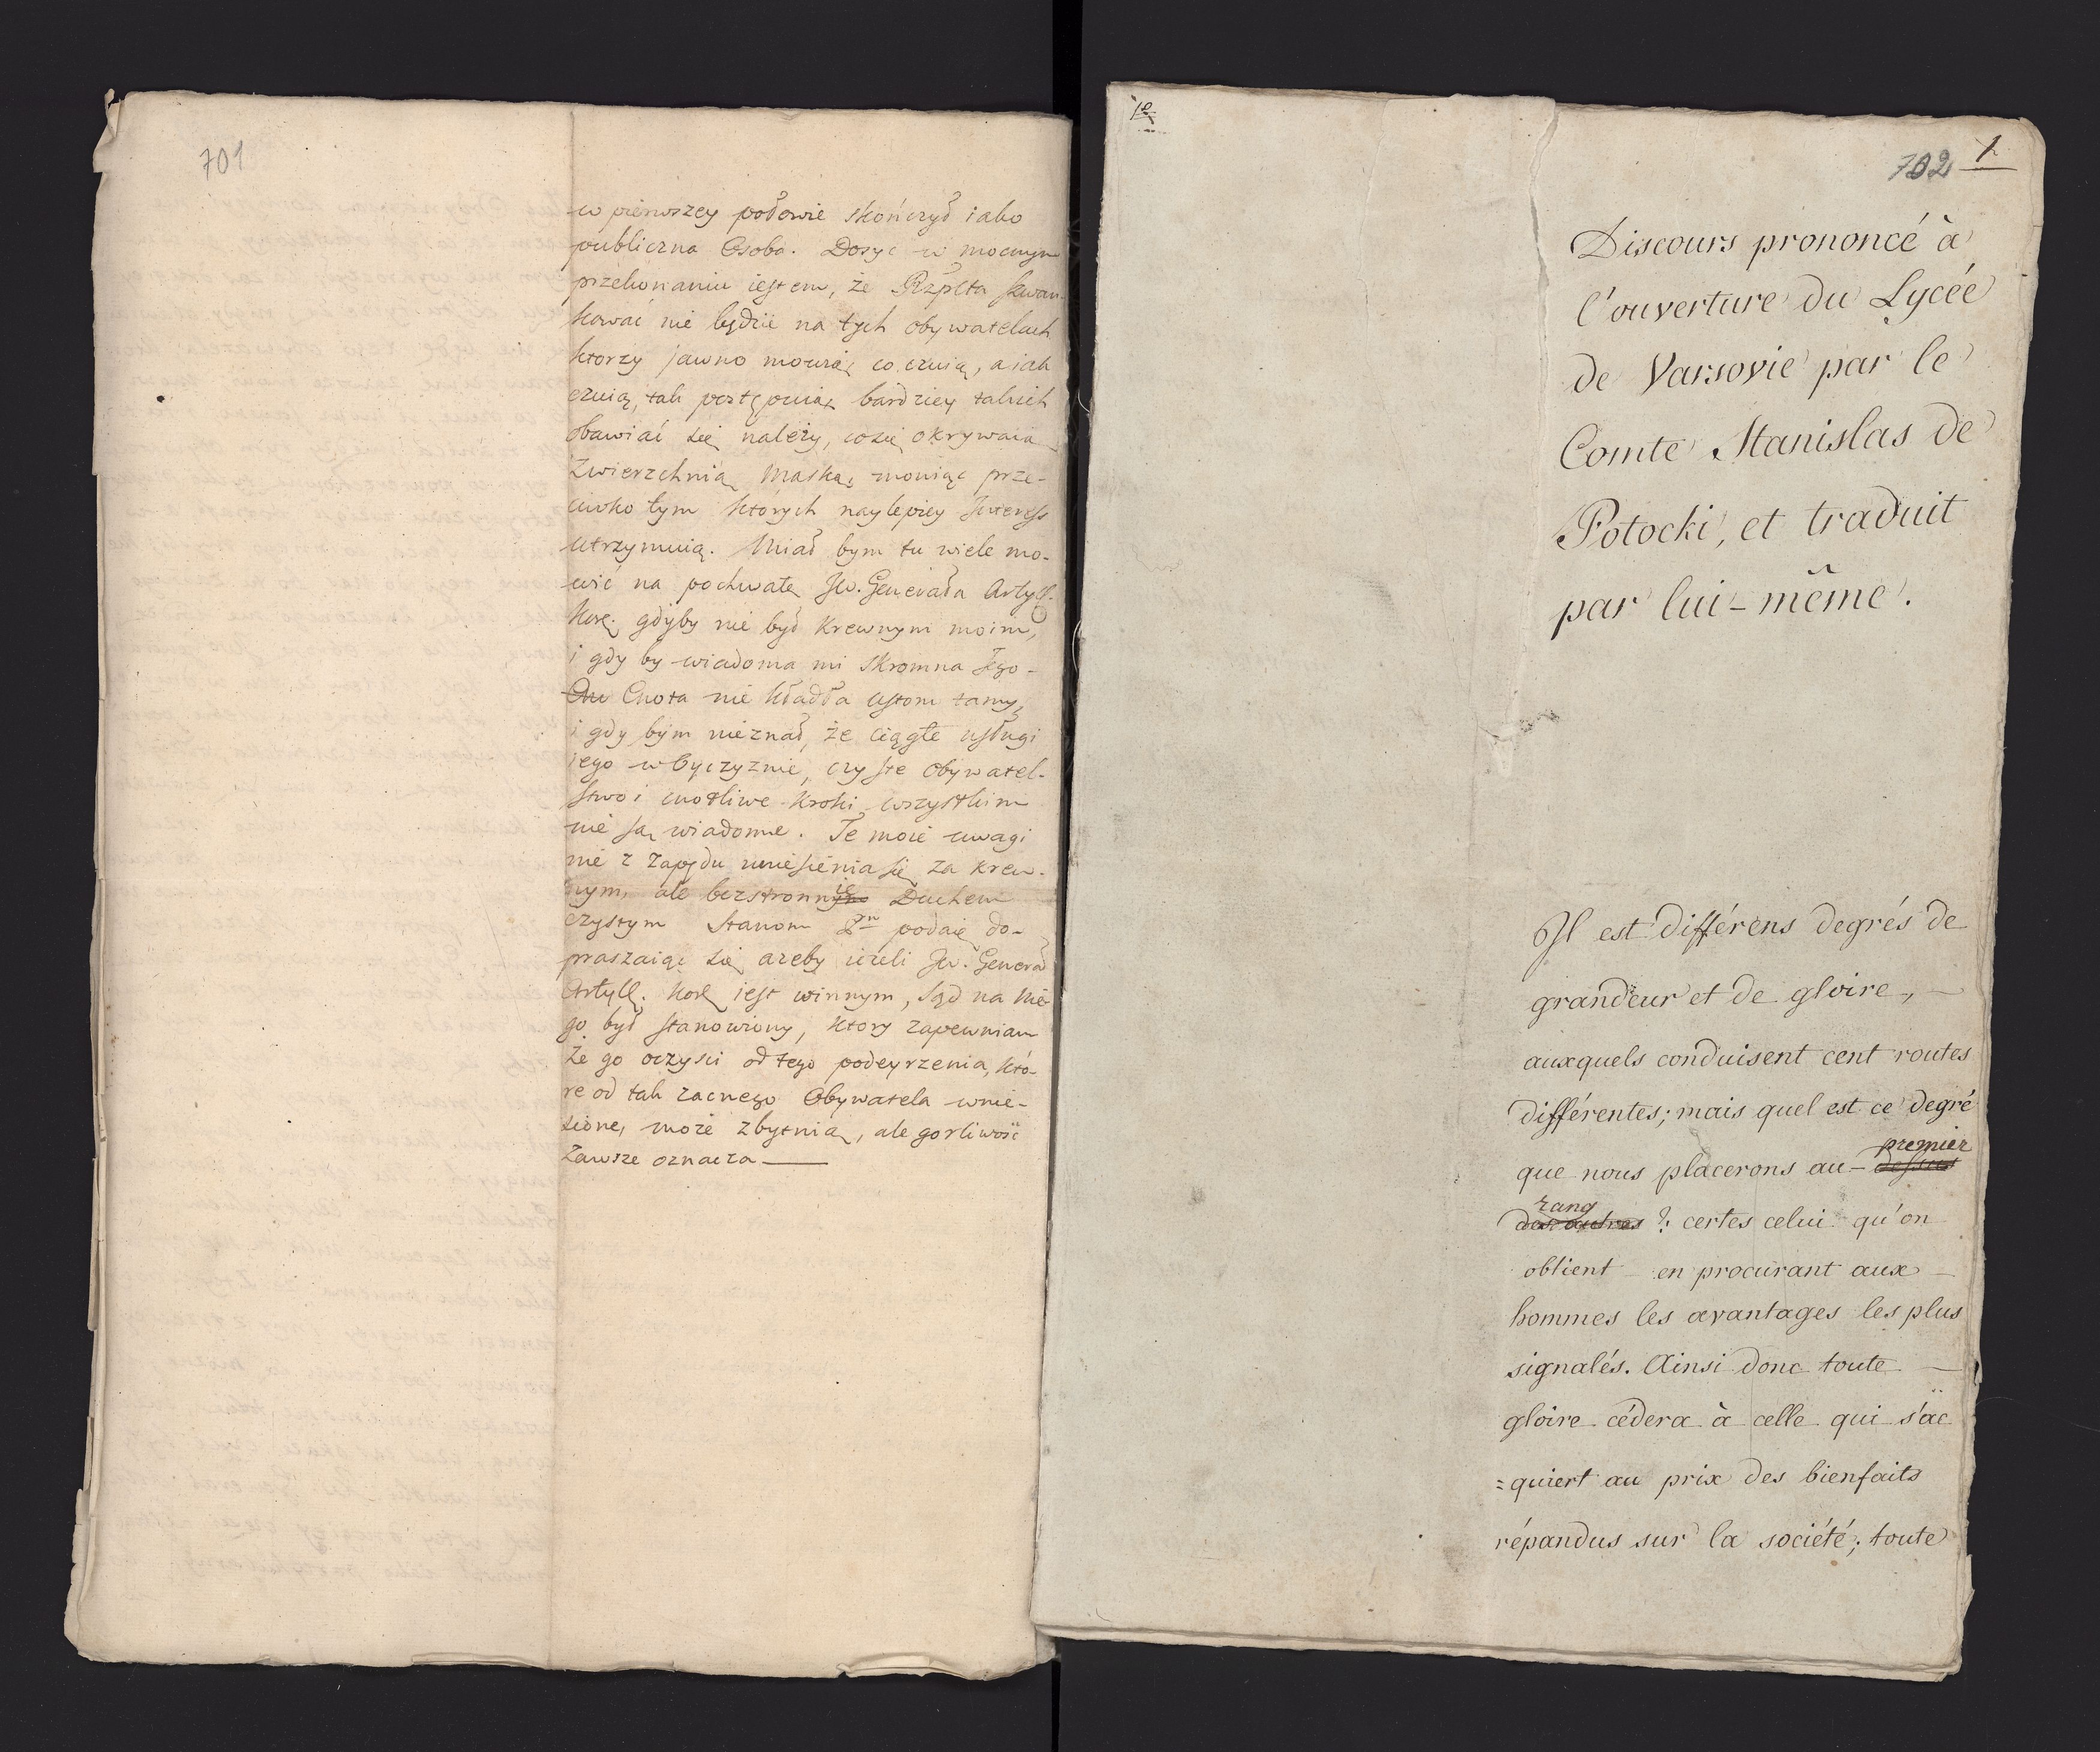 701
w pierwszey połowie skończył iako
publiczna Osoba. Dosyć w mocnym
przekonaniu iestem, że Rzplta szwan-
kować nie będzie na tych obywatelach
ktorzy jawno mowią co czuią, a iak
czuią, tak postępuią, bardziey takich
obawiać się należy, co się okrywaią
Zwierzchnią Maską, mowiąc prze-
ciwko tym których naylepiey Interess
utrzymuią. Miał bym tu wiele mo-
wić na pochwałę Jw. Generała Artyll.
Kor. gdyby nie był Krewnym moim,
i gdy by wiadoma mi skromna Jego
Cnota nie kładła ustom tamy,
i gdy bym nieznał, że ciągłe usługi
iego w Oyczyznie, czyste Obywatel-
stwo i cnotliwe kroki wszystkim
nie są wiadome. Te moie uwagi
nie z zapędu uniesienia się za Krew-
nym, ale bezstronnie Duchem
czystym Stanom podaię do-
praszaiąc się ażeby ieżeli Jw. Generał
Artyll. Kor. iest winnym, Sąd na Nie-
go był stanowiony, ktory zapewniam
że go oczyści od tego podeyrzenia, któ-
re od tak zacnego Obywatela wnie-
sione, może zbytnią, ale gorliwość
Zawsze oznacza —
702 1
Discours prononcé à
l'ouverture du Lycée
de Varsovie par le
Comte Stanislas de
Potocki, et traduit
par lui-même.
Il est différens degrés de
grandeur et de gloire, —
auxquels conduisent cent routes
différentes; mais quel est ce degré
premier
que nous placerons au - dessus
rang
des autres ? certes celui qu'on
obtient - en procurant aux -
hommes les avantages les plus
signalés. Ainsi donc toute —
gloire cédera à celle qui s'ac
=quiert au prix des bienfaits
répandus sur la société; toute